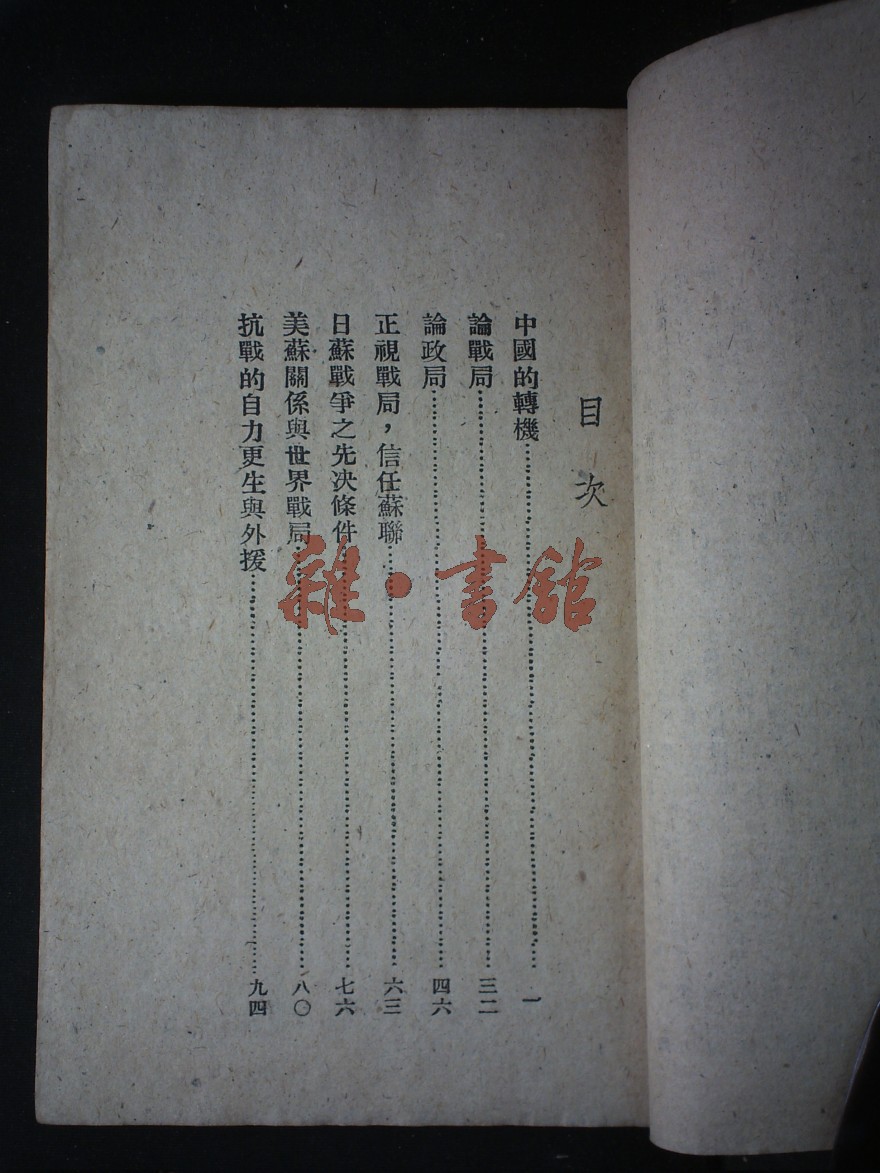 目次
中國的轉機……一
論戰局……三二
論政局……四六
正視戰局，信任蘇聯……六三
日蘇戰爭之先決條件……七六
美蘇關係與世界戰局……八〇
抗戰的自力更生與外援……九四
雜·書館